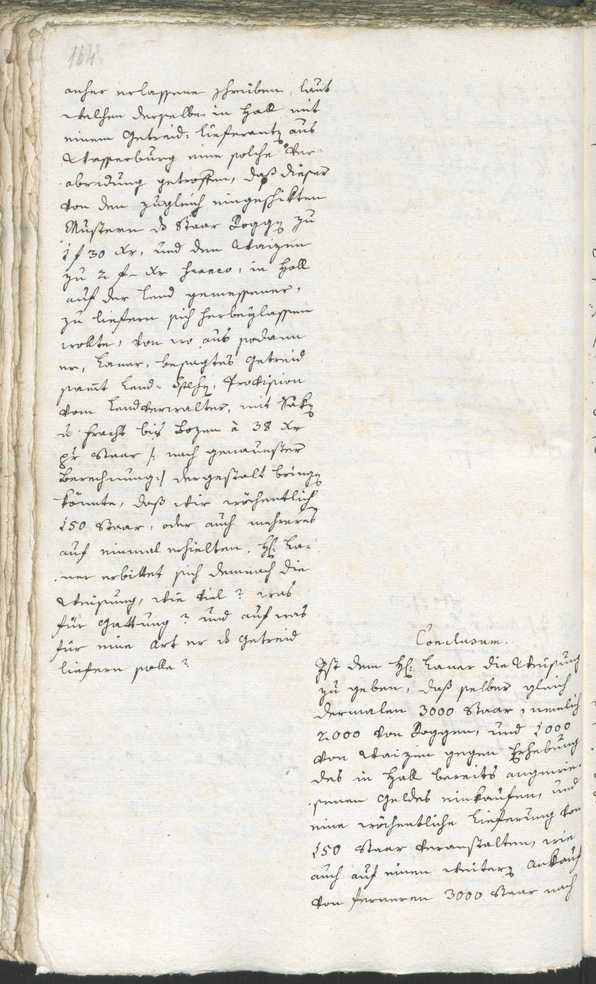 164.
anher erlassene schreiben, laut
welchen derselbe in Hall mit
einem Getreid-Lieferantn aus
Wasserburg eine solche Ver-
abredung getroffen, daß dieser
von den zugleich eingeschikten
Mustern ds Staar Roggn zu
1 f 30 Xr, und den Waizen
zu 2 f - Xr franco, in Hall
auf der Länd gemessener,
zu liefern sich herbeylassen
wollte, von wo aus sodann
er, Lanar, besagtes Getreid
samt Länd- Provision
vom Landverwalter, mit Säkn
u: fracht bis Bozen à 38 Xr
pr Staar /: nach genauester
Berechnung:/ dergestalt bringn
könnte, daß wir wöchentlich
150 Staar, oder auch mehreres
auf einmal erhielten. H: La-
nar erbittet sich demnach die
Weisung, wie viel? was
für Gattung? und auf was
für eine Art er ds Getreid
liefern solle?
Conclusum.
Ist dem H: Lanar die Weisung
zu geben, daß selber gleich
dermalen 3000 Staar, nemlich
2000 von Roggen, und 1000
von Waizen gegen Erhebung
des in Hall bereits angewie-
senen Geldes einkaufen, und
eine wöchentliche Lieferung von
150 Staar veranstalten, wie
auch auf einen weitern Ankauf
von ferneren 3000 Staar nach